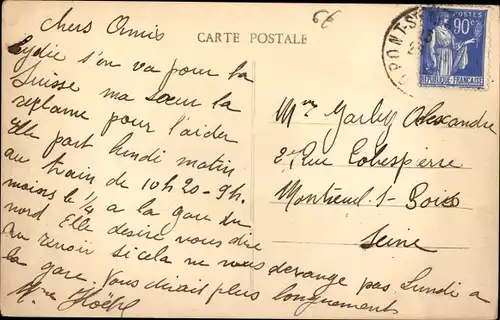 66
CARTE POSTALE
POSTES
90c
REPUBLIQUE FRANÇAISE
PONT-S
Chers Amis
Lydie s'en va pour la
Suisse ma sœur la
reclame pour l'aider
Elle part lundi matin
au train de 10h20 - 9h.
moins le 1/4 a la gare du
nord Elle desire vous dire
au revoir si cela ne vous derange pas Lundi a
la gare. Vous dirait plus longuement
Mme
Mme Garley Alexandre
2 Rue Robespierre
Montreuil s- Bois
Seine